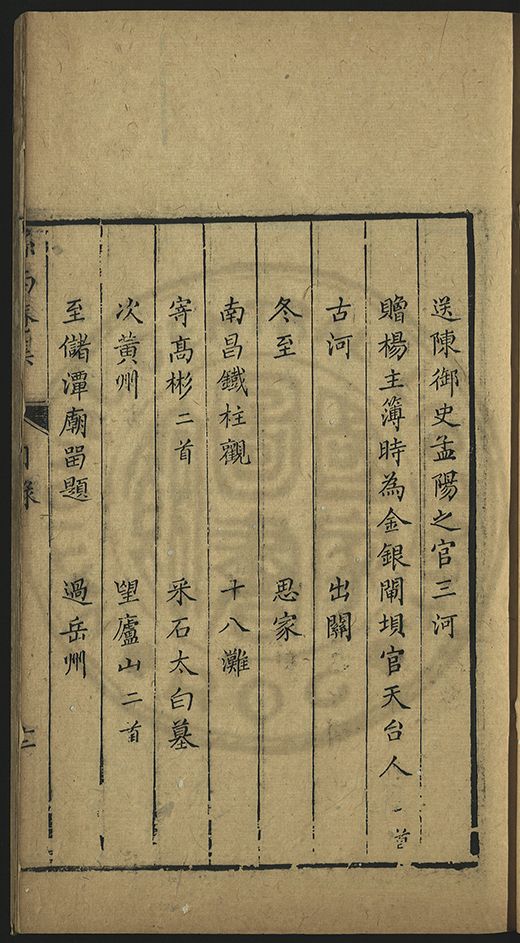 送陳御史孟陽之官三河
贈楊主簿時為金銀閘垻官天台人 一首
古河 出關
冬至 思家
南昌鐵柱觀 十八灘
寄高彬二首 采石太白墓
次黃州 望廬山二首
至儲潭廟畱題 過岳州
目錄